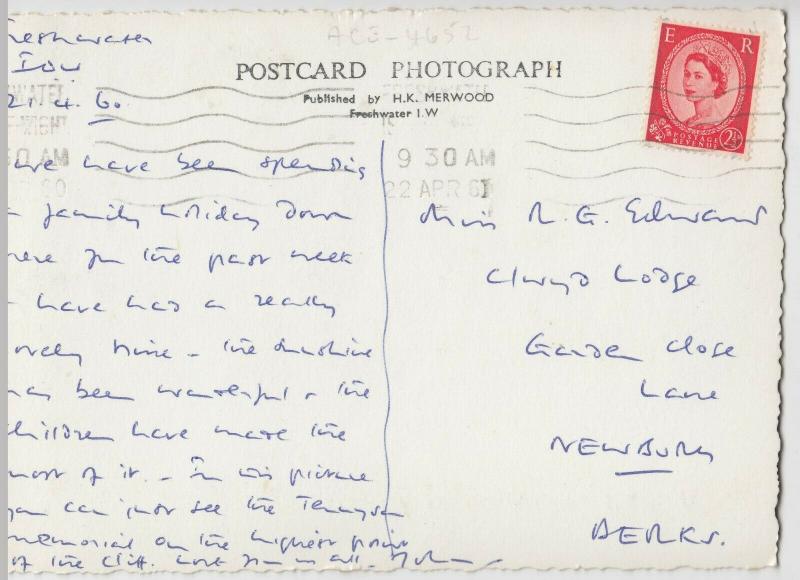 Freshwater
IOW
21.4.60
ACJ-4652
POSTCARD PHOTOGRAPH
Published by H.K. MERWOOD
Freshwater I.W
9 30 AM
22 APR 60
E R
POSTAGE REVENUE
2½D
We have been spending
a family holiday down
here for the past week
& have had a really
lovely time - the sunshine
has been wonderful & the
children have made the
most of it. - In this picture
you can just see the Tennyson
memorial on the highest point
of the cliff. Love from us all.
Miss R. G. Edwards
Clwyd Lodge
Garden Close
Lane
NEWBURY
BERKS.